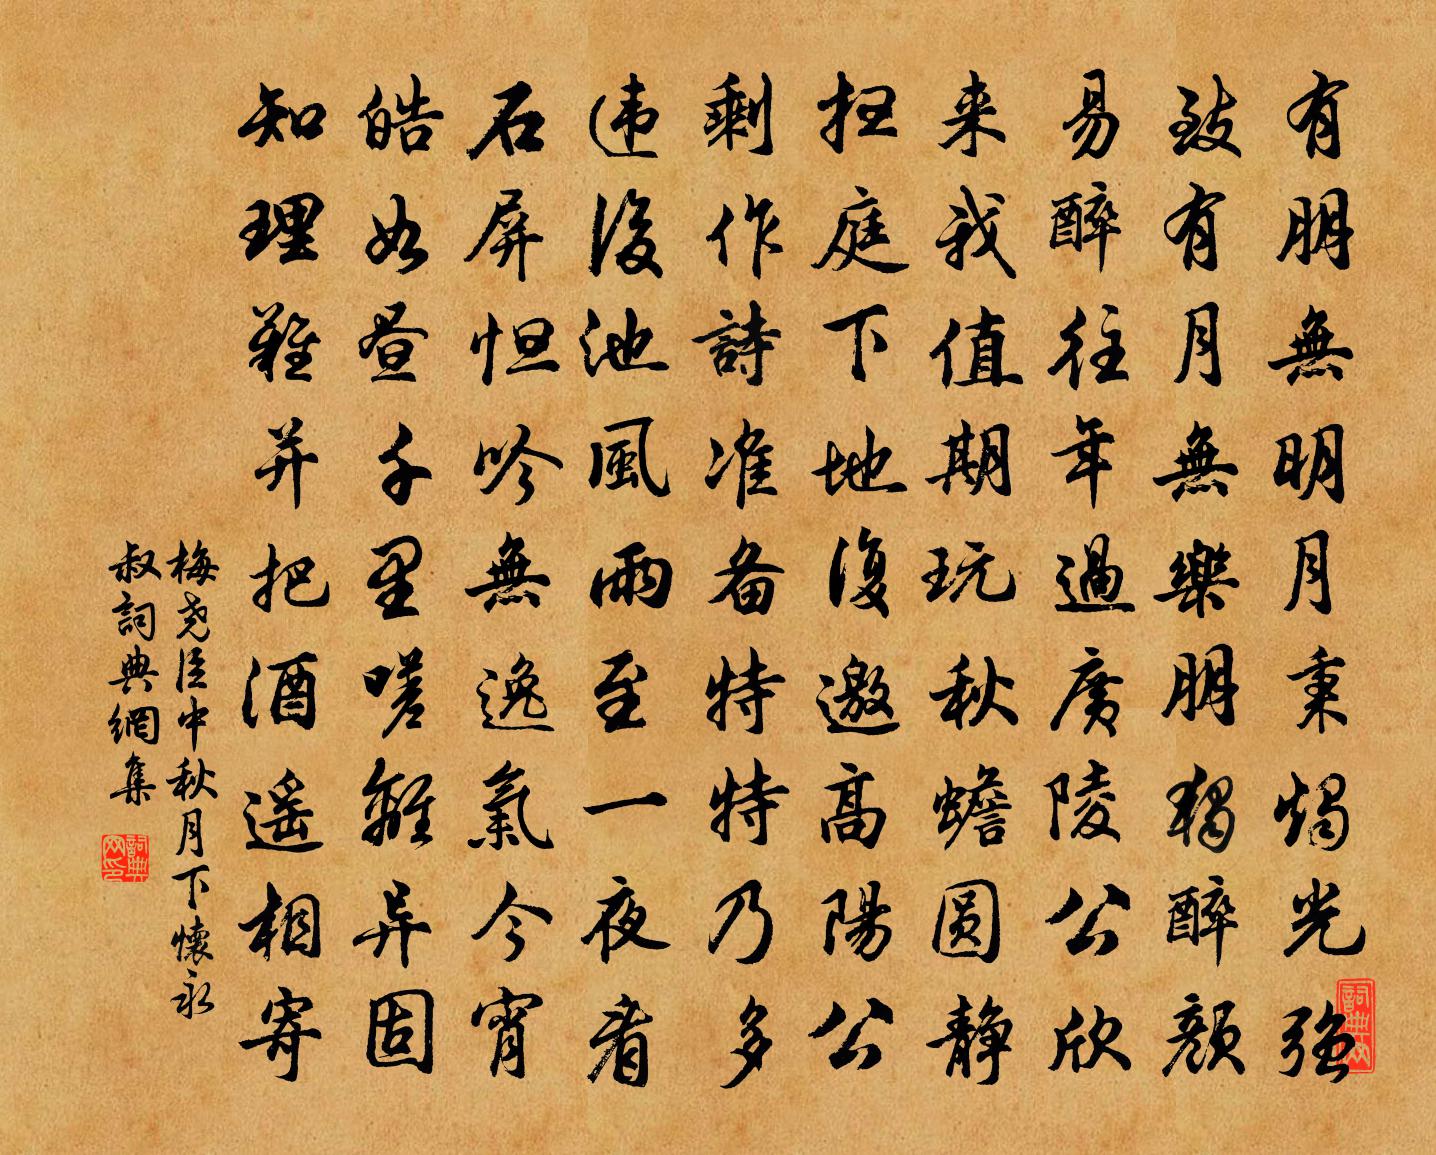 有朋無明月秉燭光强
致有月無樂朋獨醉顏
易醉往年過廣陵公欣
来我值期玩秋蟾圓静
扫庭下地復邀高陽公
剩作詩准备特特乃多
违後池風雨至一夜看
石屏怛吟無逸氣今宵
皓如昼千里嗟離异固
知理難并把酒遥相寄
梅尧臣中秋月下懷永
叔詞典網集
詞典网
詞典网印